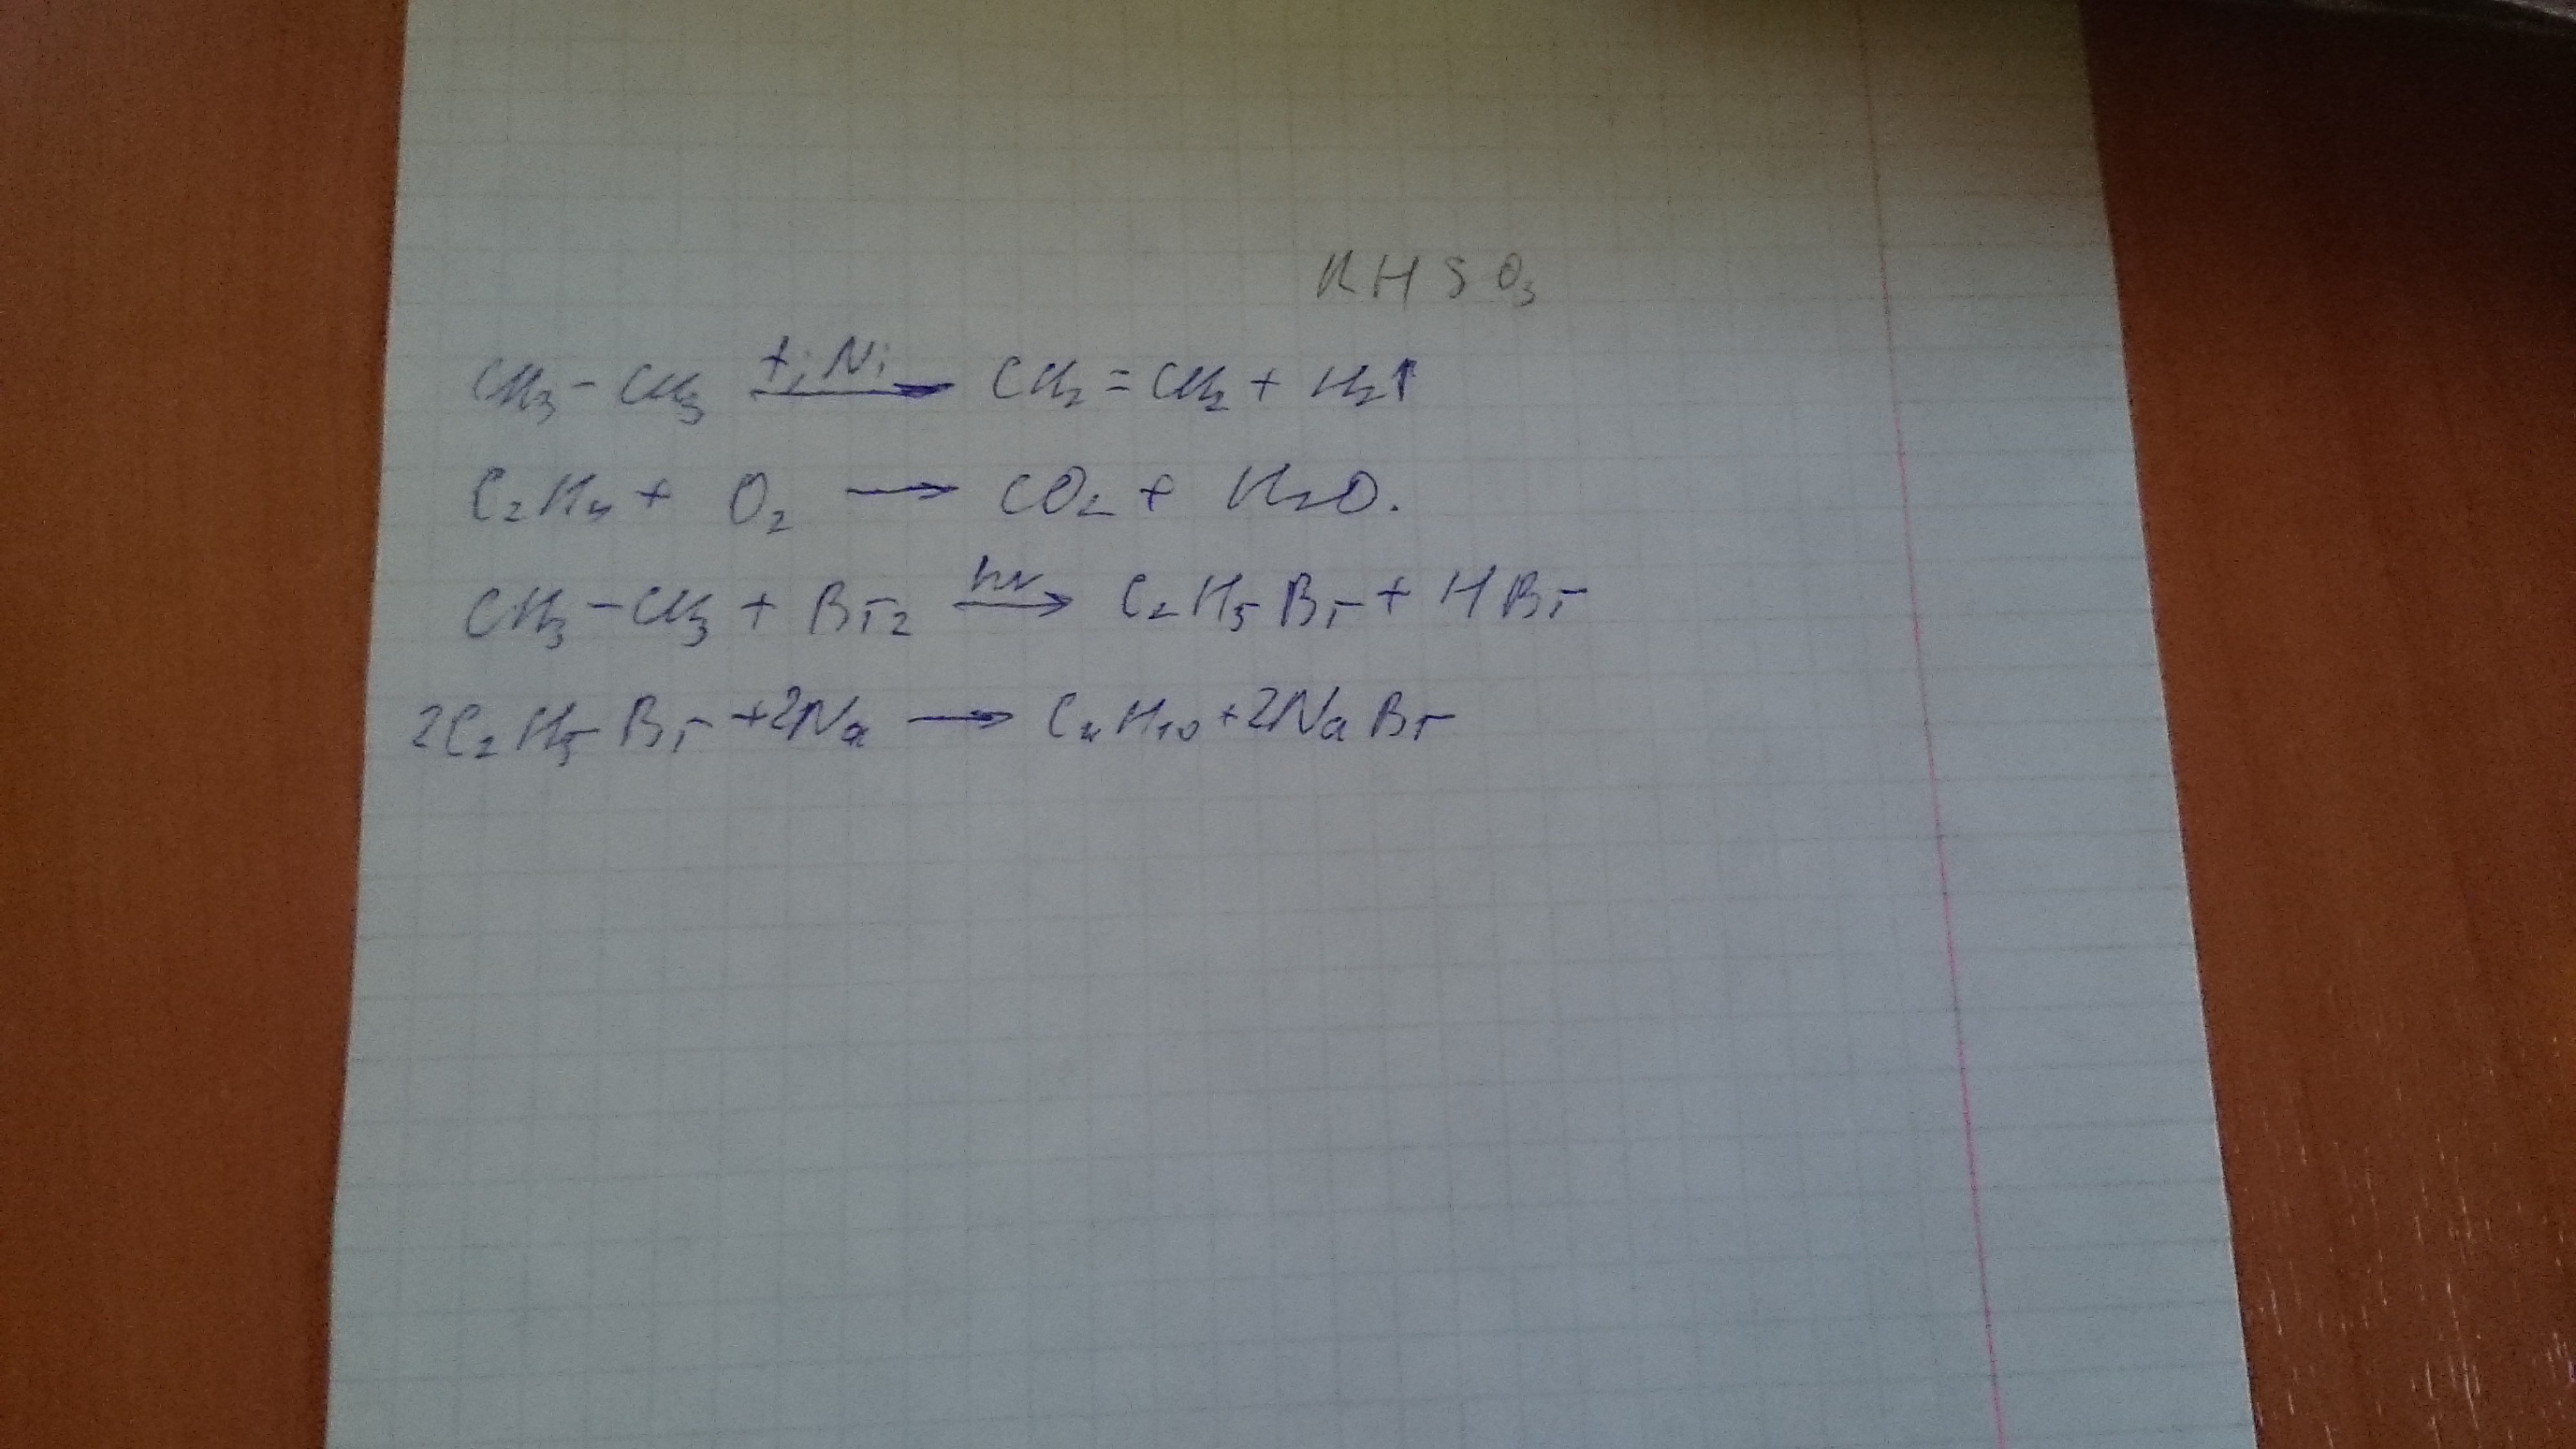 KHSO₃
CH₃ - CH₃ t, Ni → CH₂ = CH₂ + H₂↑
C₂H₄ + O₂ → CO₂ + H₂O.
CH₃ - CH₃ + Br₂ hν → C₂H₅Br + HBr
2C₂H₅Br + 2Na → C₄H₁₀ + 2NaBr